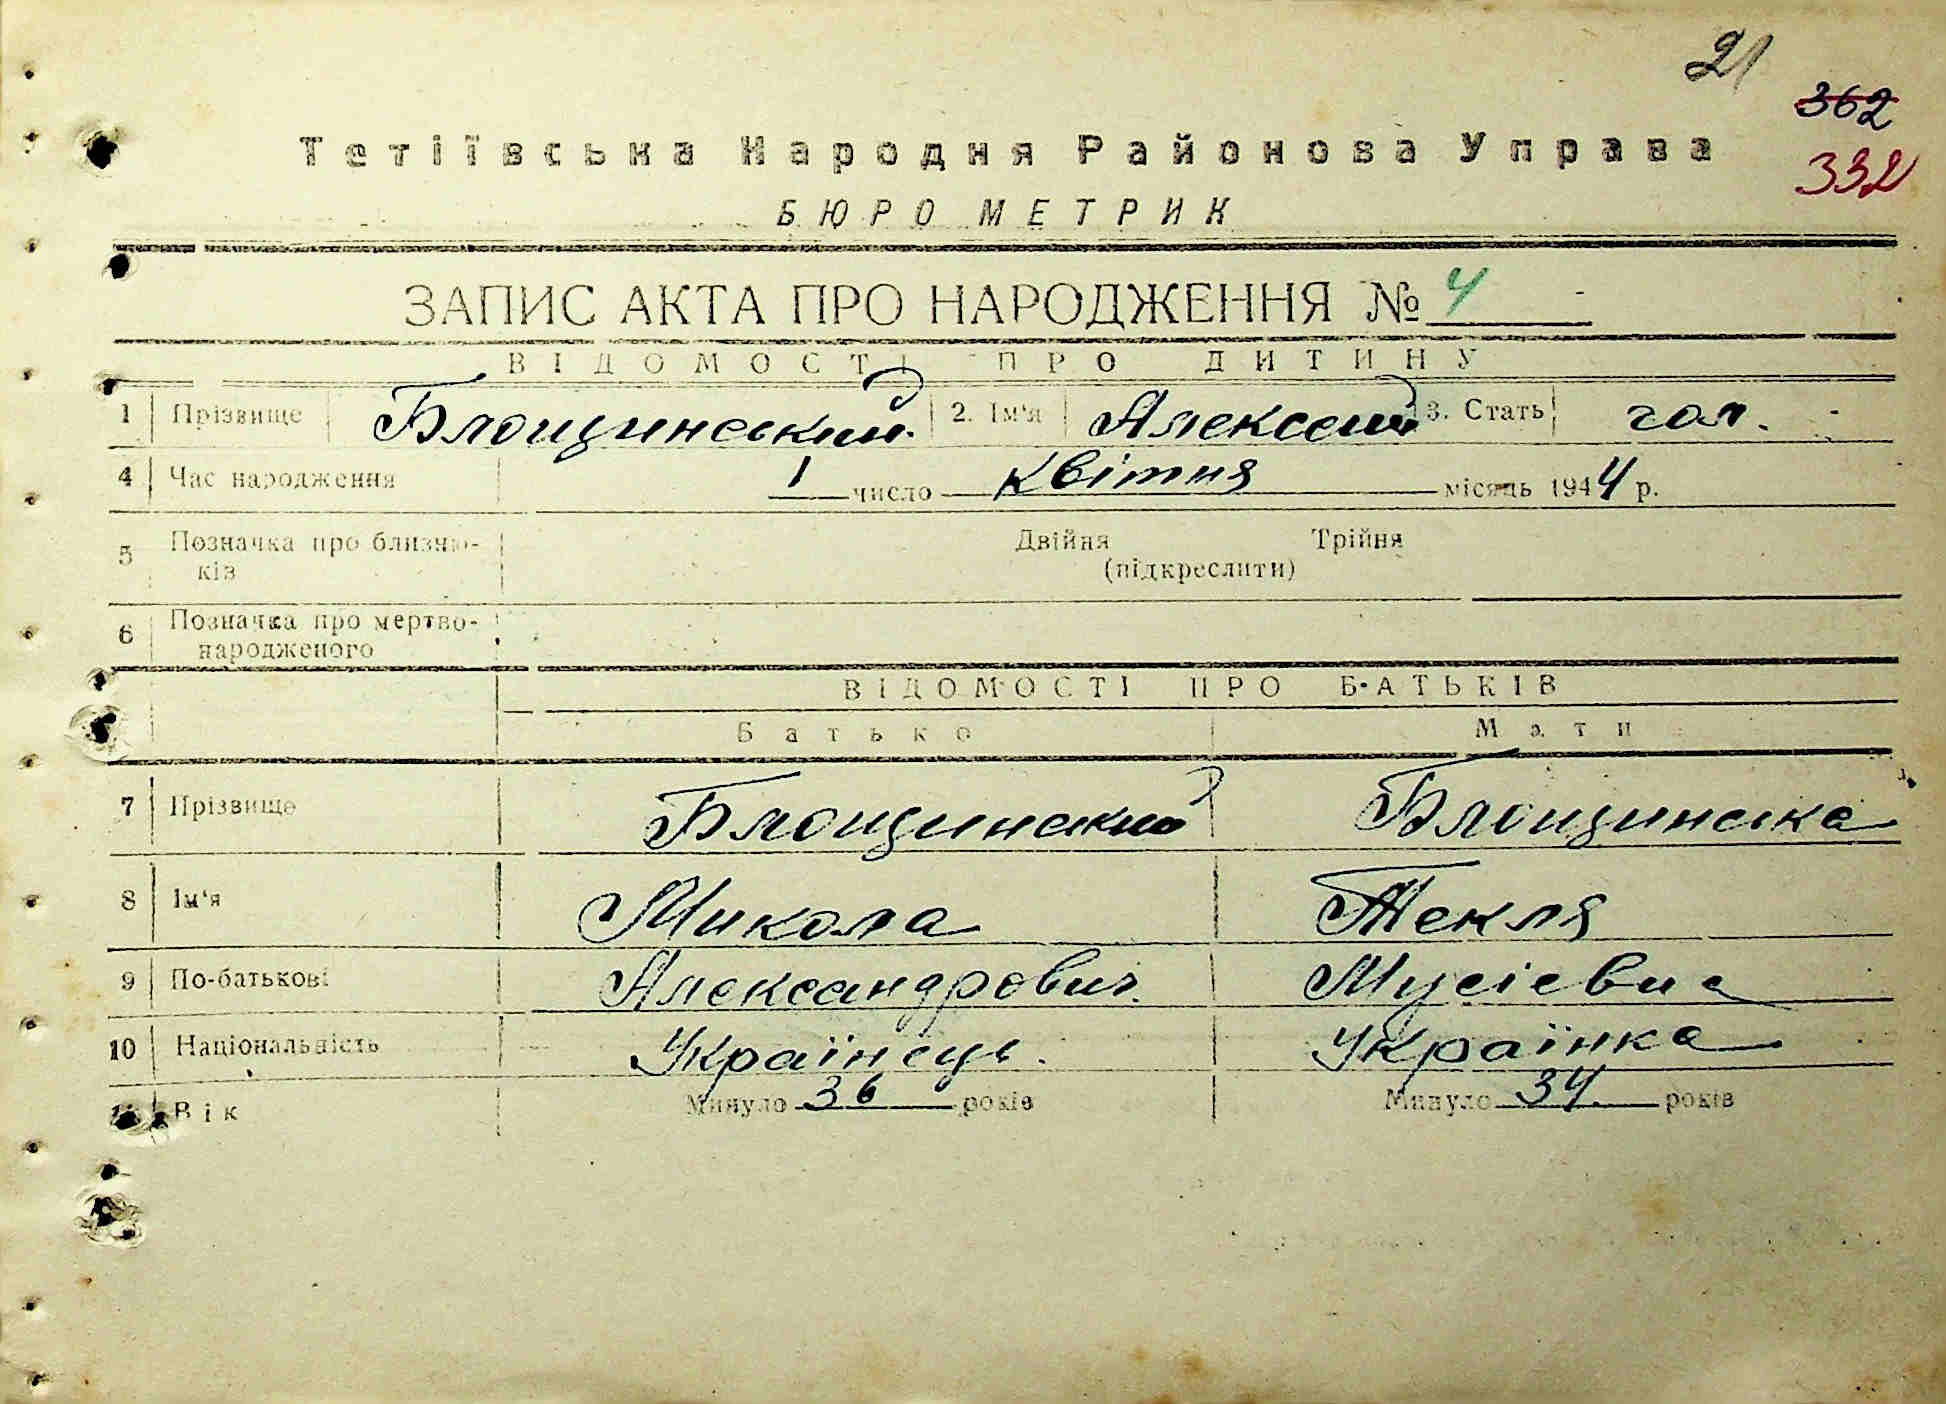 21
362
332
Тетіївська Народня Районова Управа
БЮРО МЕТРИК
ЗАПИС АКТА ПРО НАРОДЖЕННЯ № 4
ВІДОМОСТІ ПРО ДИТИНУ
1 Прізвище Блощинський 2. Ім'я Алексей 3. Стать чол.
4 Час народження 1 число Квітня місяць 1944 р.
5 Позначка про близню- Двійня Трійня
ків (підкреслити)
6 Позначка про мертво-
народженого
ВІДОМОСТІ ПРО БАТЬКІВ
Батько Мати
7 Прізвище Блощинский Блощинська
8 Ім'я Микола Текля
9 По-батькові Александрович Мусієвна
10 Національність Українець. Українка
11 Вік Минуло 36 років Минуло 34 років